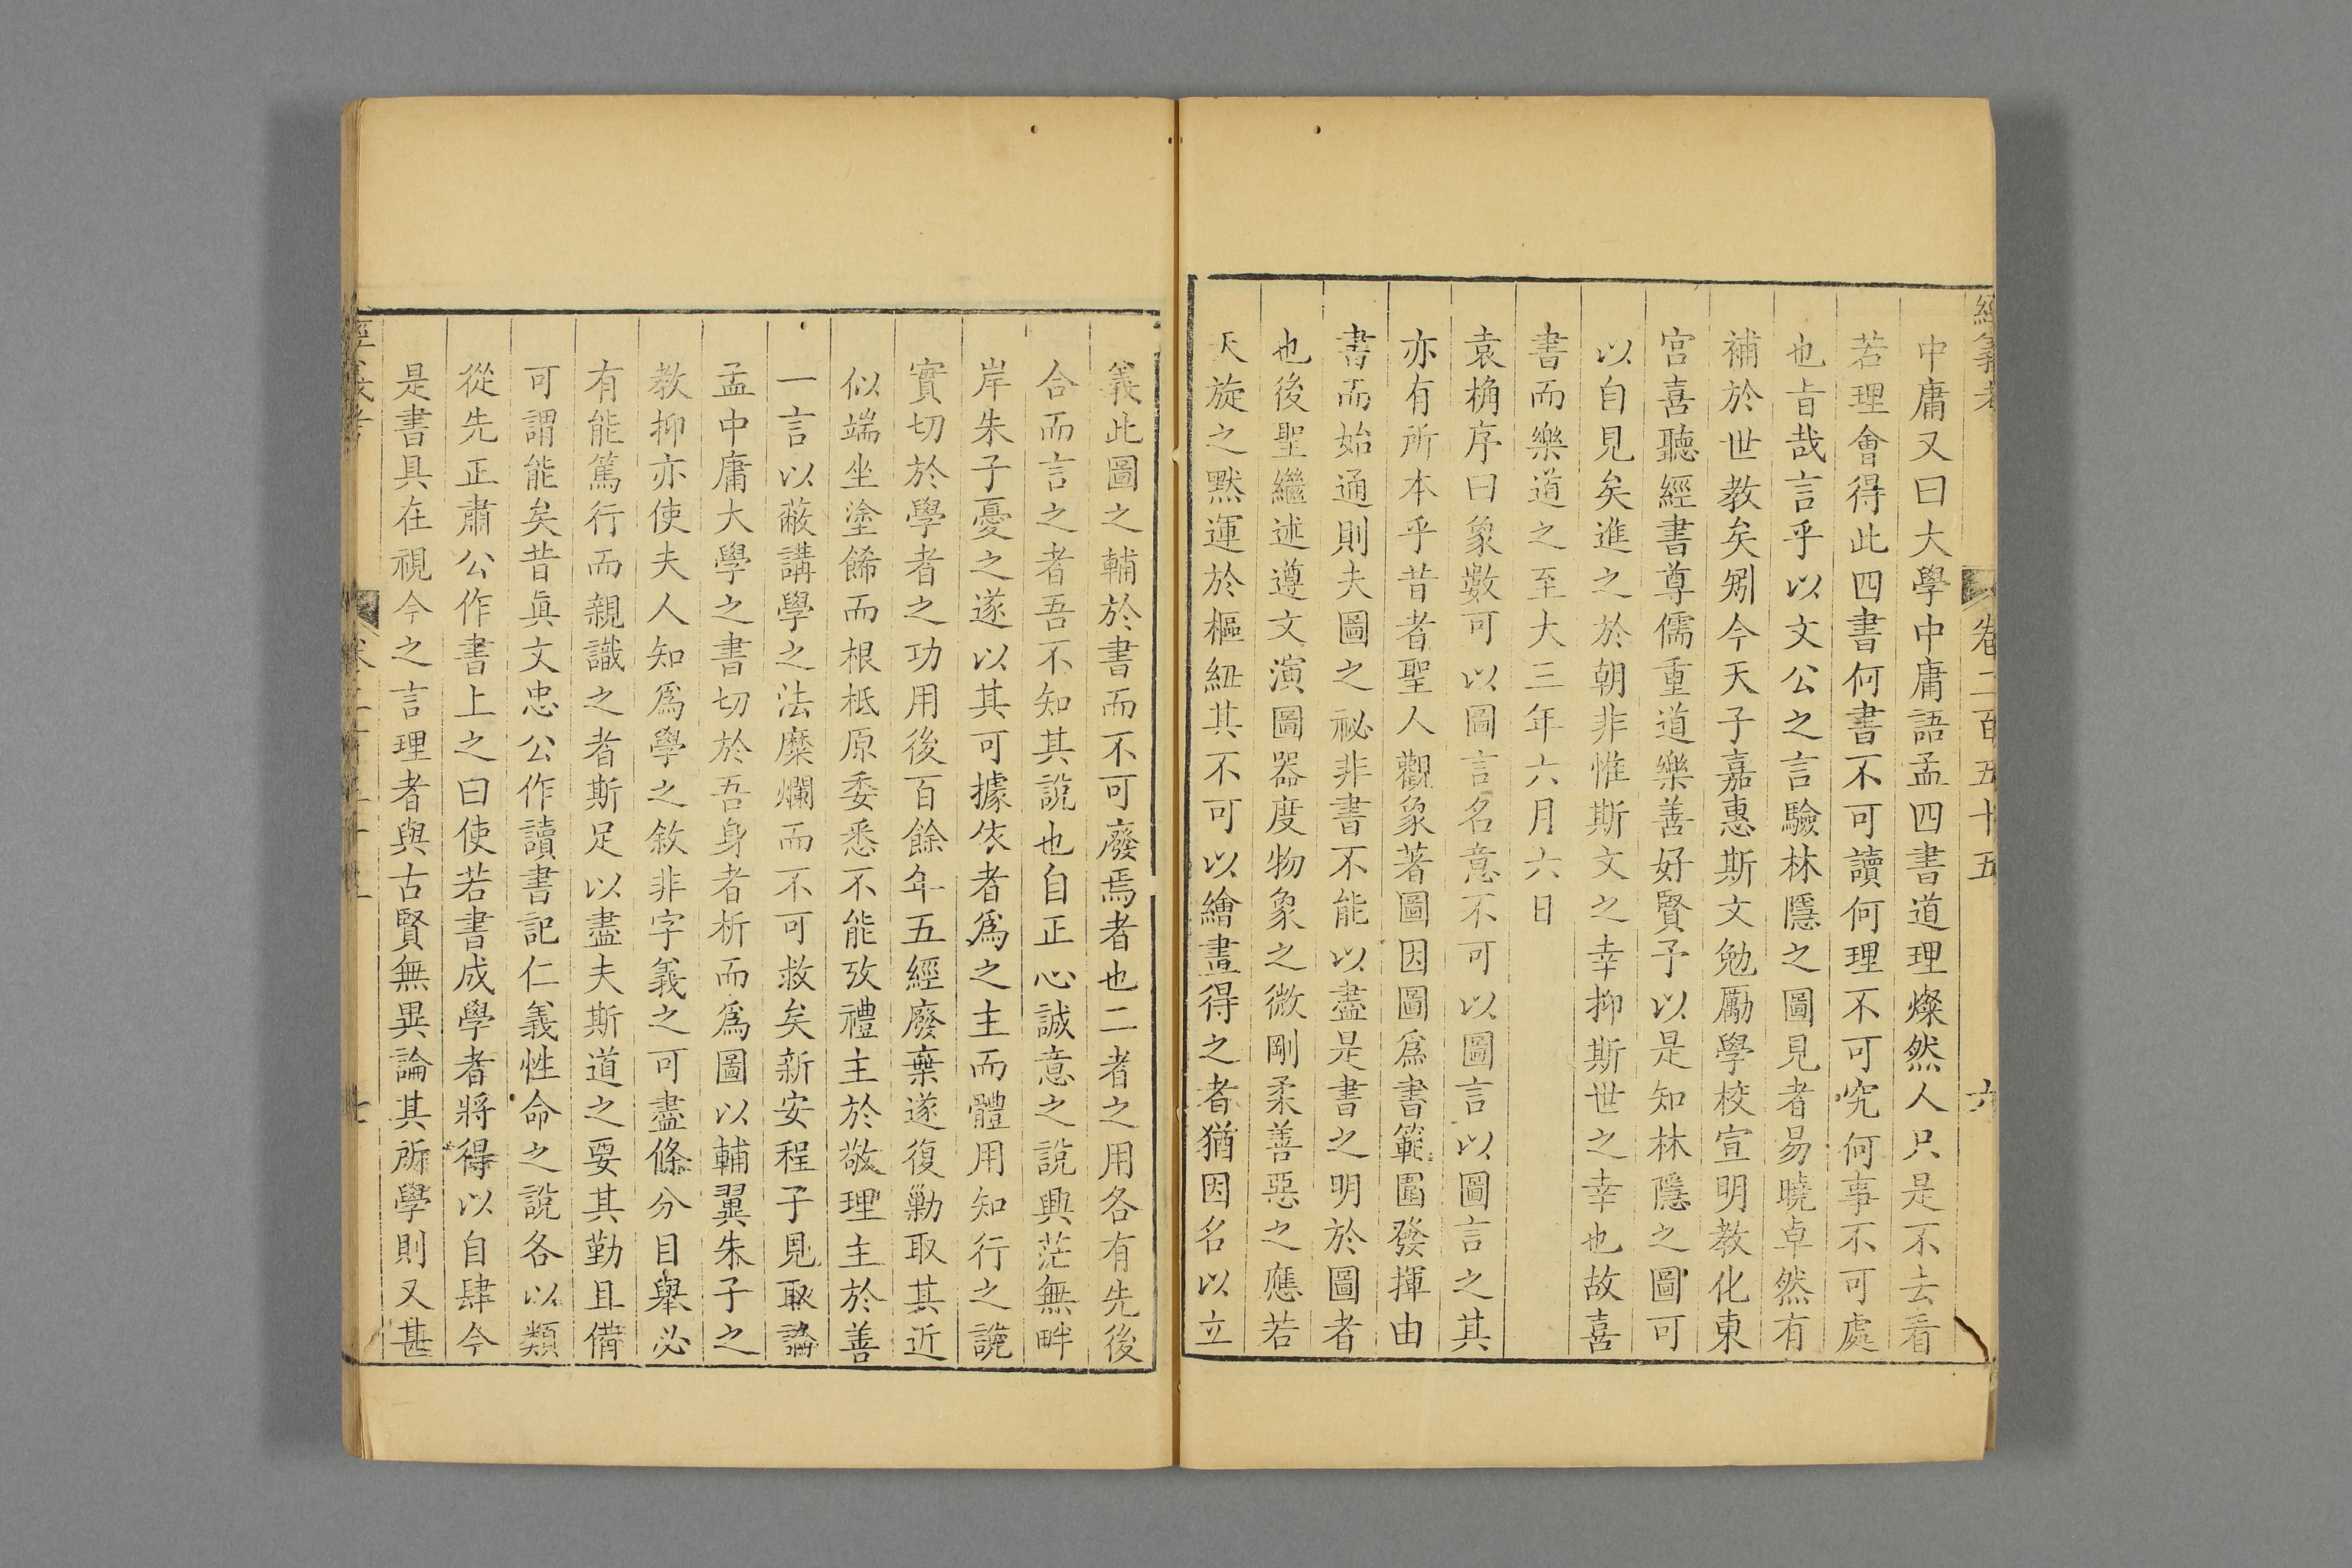 經義考 卷二百五十五 六
中庸又曰大學中庸語孟四書道理燦然人只是不去看
若理會得此四書何書不可讀何理不可究何事不可處
也旨哉言乎以文公之言驗林隱之圖見者易曉卓然有
補於世教矣矧今天子嘉惠斯文勉勵學校宣明教化東
宮喜聽經書尊儒重道樂善好賢予以是知林隱之圖可
以自見矣進之於朝非惟斯文之幸抑斯世之幸也故喜
書而樂道之至大三年六月六日
袁桷序曰象數可以圖言名意不可以圖言以圖言之其
亦有所本乎昔者聖人觀象著圖因圖爲書範圍發揮由
書而始通則夫圖之祕非書不能以盡是書之明於圖者
也後聖繼述遵文演圖器度物象之微剛柔善惡之應若
天旋之默運於樞紐其不可以繪畫得之者猶因名以立
義此圖之輔於書而不可廢焉者也二者之用各有先後
合而言之者吾不知其說也自正心誠意之說興茫無畔
岸朱子憂之遂以其可據依者爲之主而體用知行之說
實切於學者之功用後百餘年五經廢棄遂復勦取其近
似端坐塗飾而根柢原委悉不能攷禮主於敬理主於善
一言以蔽講學之法糜爛而不可救矣新安程子見取論
孟中庸大學之書切於吾身者析而爲圖以輔翼朱子之
教抑亦使夫人知爲學之敘非字義之可盡條分目舉必
有能篤行而親識之者斯足以盡夫斯道之要其勤且備
可謂能矣昔眞文忠公作讀書記仁義性命之說各以類
從先正肅公作書上之曰使若書成學者將得以自肆今
是書具在視今之言理者與古賢無異論其所學則又甚
經義考 卷二百五十五 七